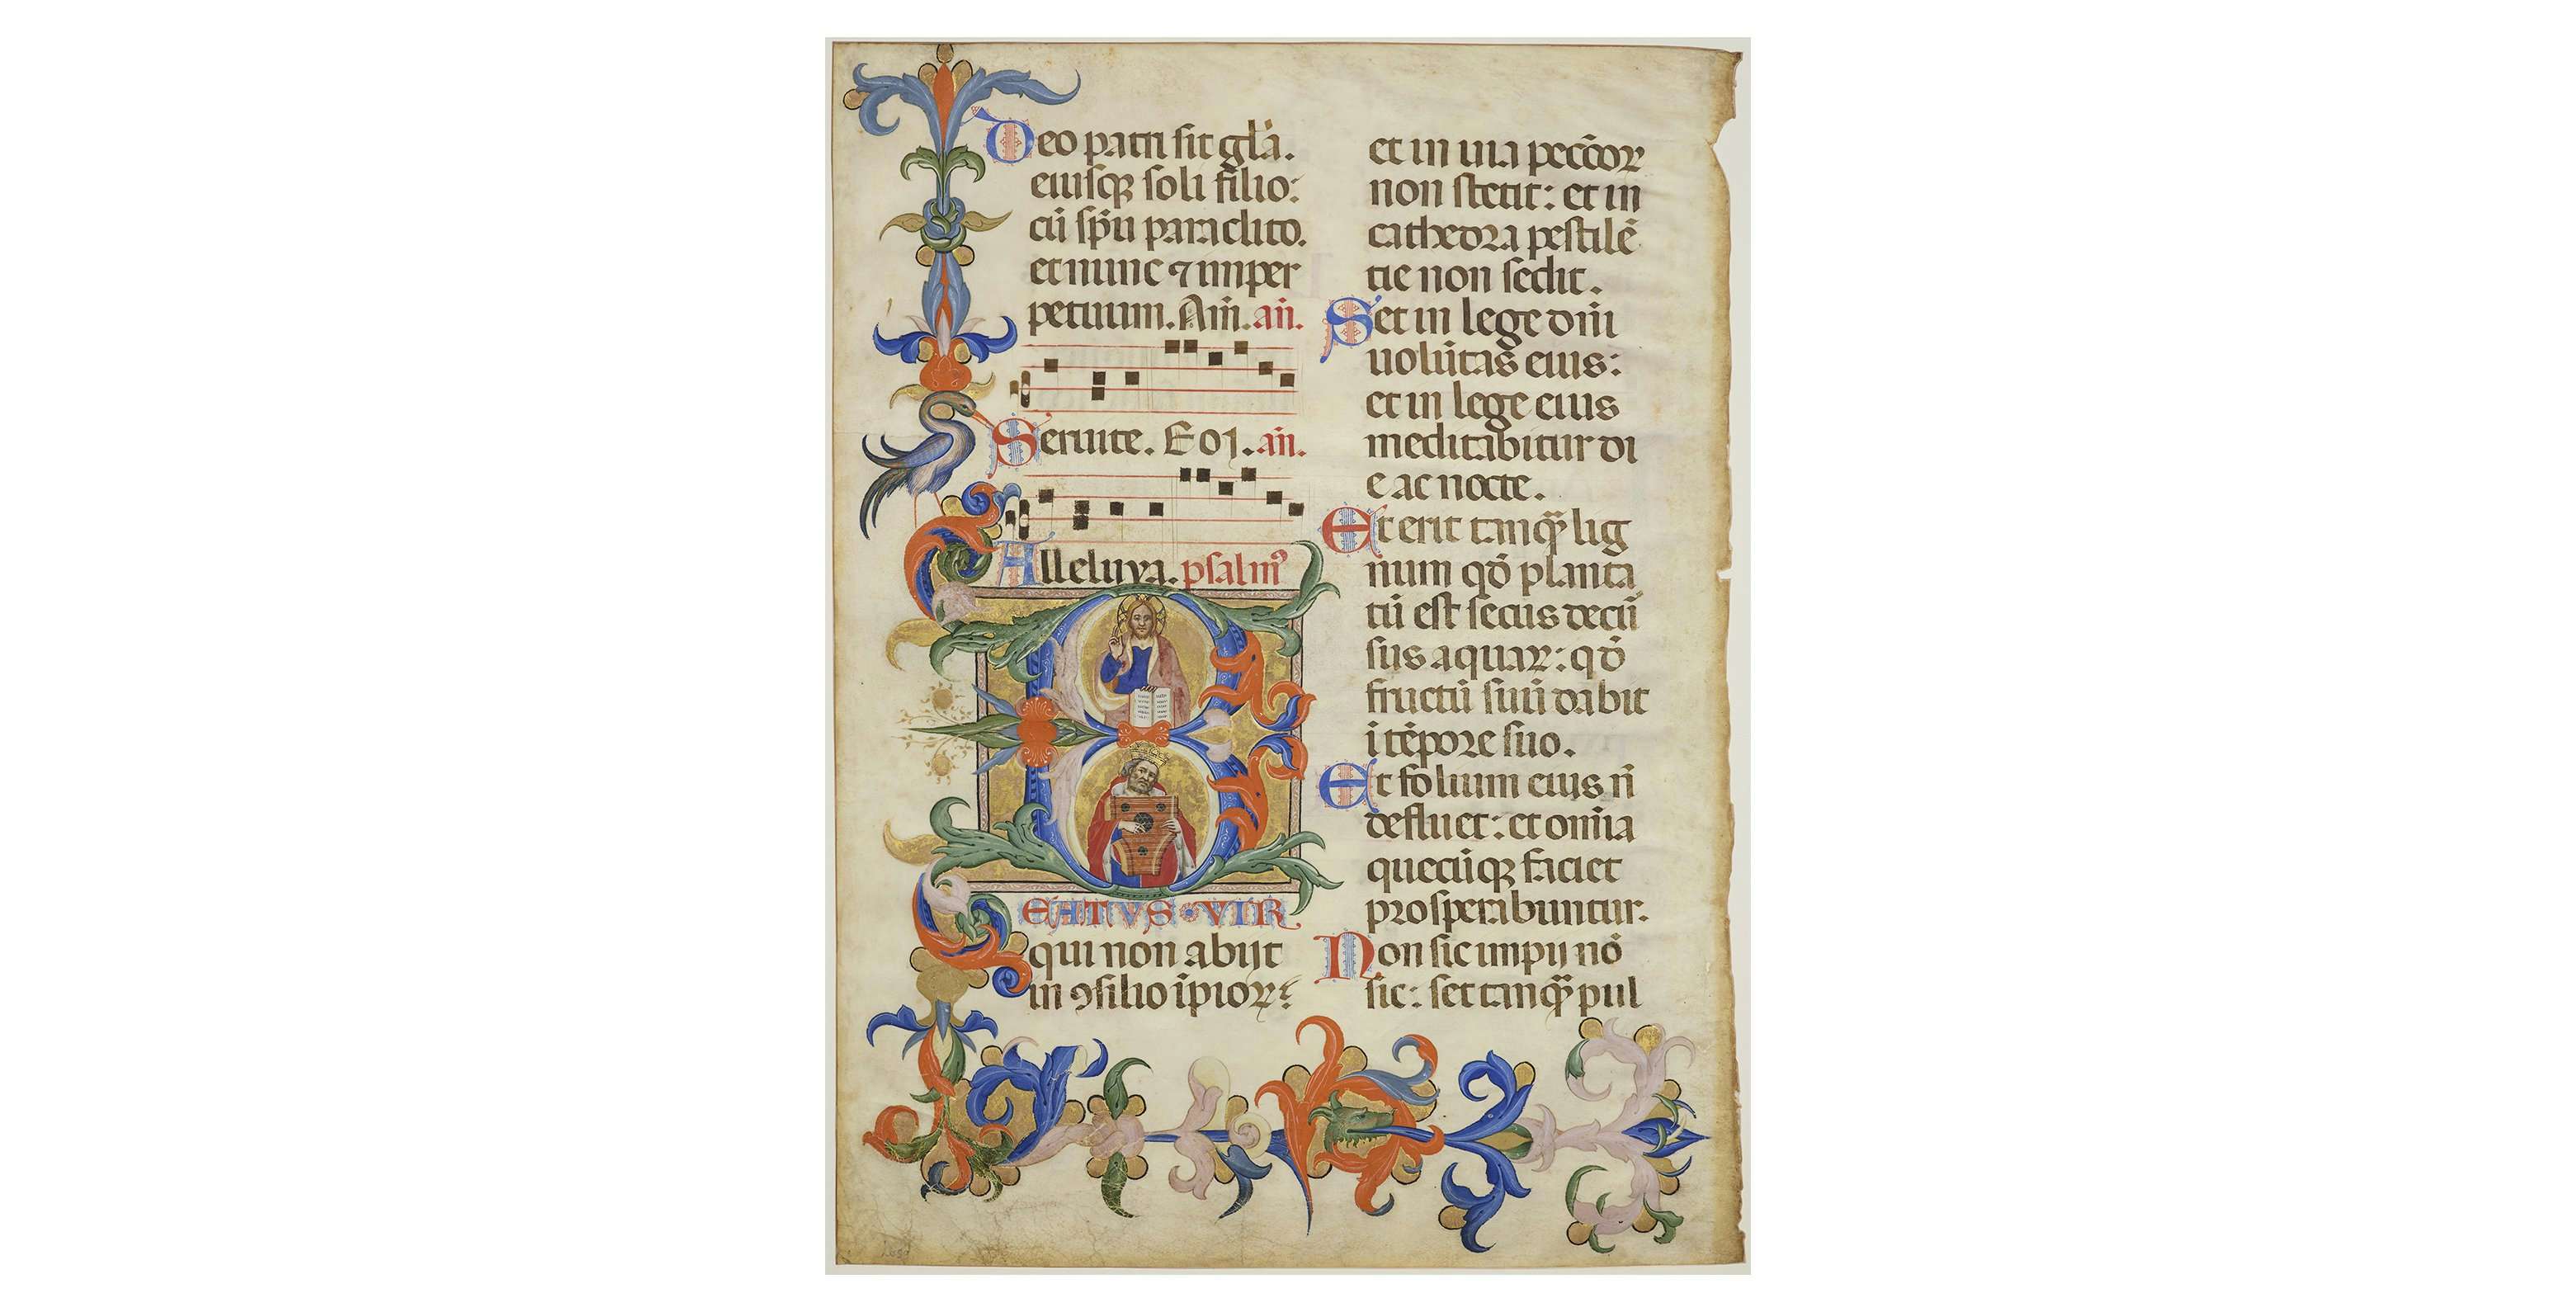 Deo patri sit gl̃a.
eiusqȝ soli filio:
cū sp̄u paraclito.
et nunc ⁊ imper
petuum. Am̄. an̄.
Seruite. Eoꝛ. an̄.
Alleluya. psalm᷒
BEATVS · VIR
qui non abijt
in ꝯsilio īpioꝝ:
et in uia pecc̄oꝝ
non stetit: et in
cathedra pestilē
tie non sedit.
Set in lege dn̄i
uolūtas eius:
et in lege eius
meditabitur di
e ac nocte.
Et erit tanqᷓ lig
num qđ planta
tū est secus decur̄
sus aquaꝝ: qđ
fructū suū dabit
ī tēpore suo.
Et folium eius n̄
defluet: et om̄ia
quecūqȝ faciet
prosperabuntur.
Non sic impij nō
sic: set tanqᷓ pul